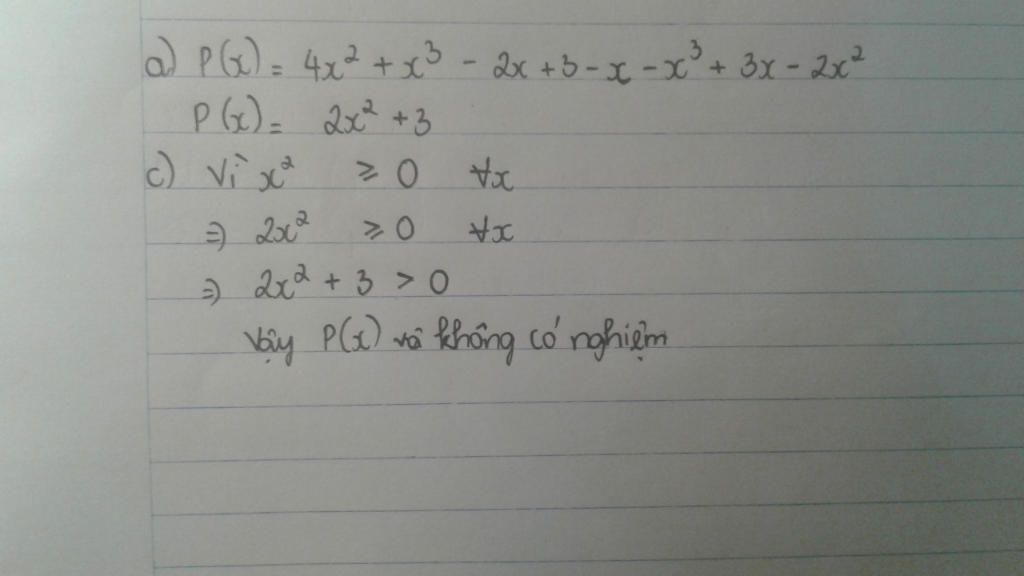 a) P(x) = 4x² + x³ - 2x + 3 - x - x³ + 3x - 2x²
P(x) = 2x² + 3
c) Vì x² ≥ 0 ∀x
⇒ 2x² ≥ 0 ∀x
⇒ 2x² + 3 > 0
Vậy P(x) vô không có nghiệm